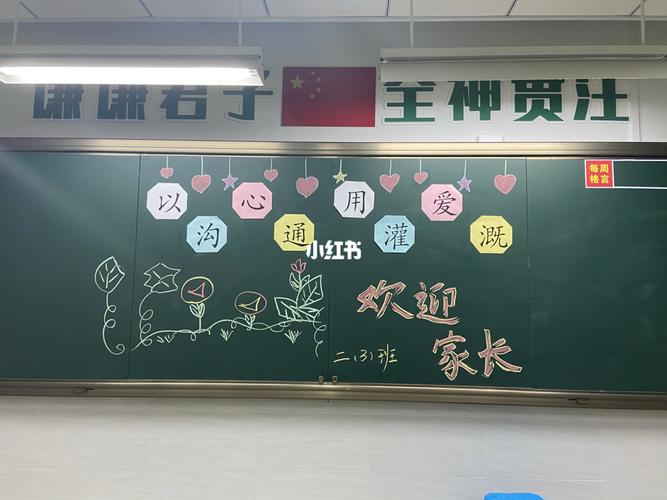 谦谦君子 全神贯注
每周
格言
以心用爱
沟通灌溉
小红书
欢迎
家长
二(3)班